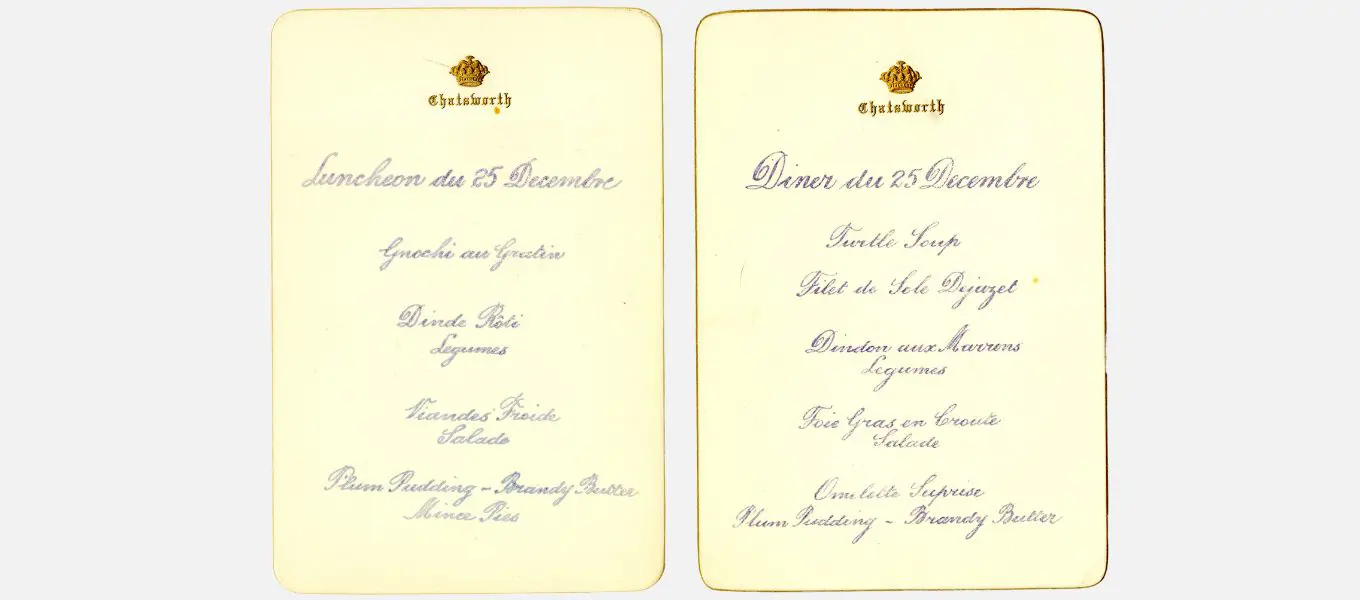 Chatsworth
Luncheon du 25 Decembre
Gnochi au Gratin
Dinde Rôti
Legumes
Viandes Froide
Salade
Plum Pudding - Brandy Butter
Mince Pies
Chatsworth
Diner du 25 Decembre
Turtle Soup
Filet de Sole Dijazet
Dindon aux Marrons
Legumes
Foie Gras en Croute
Salade
Omelette Suprise
Plum Pudding - Brandy Butter